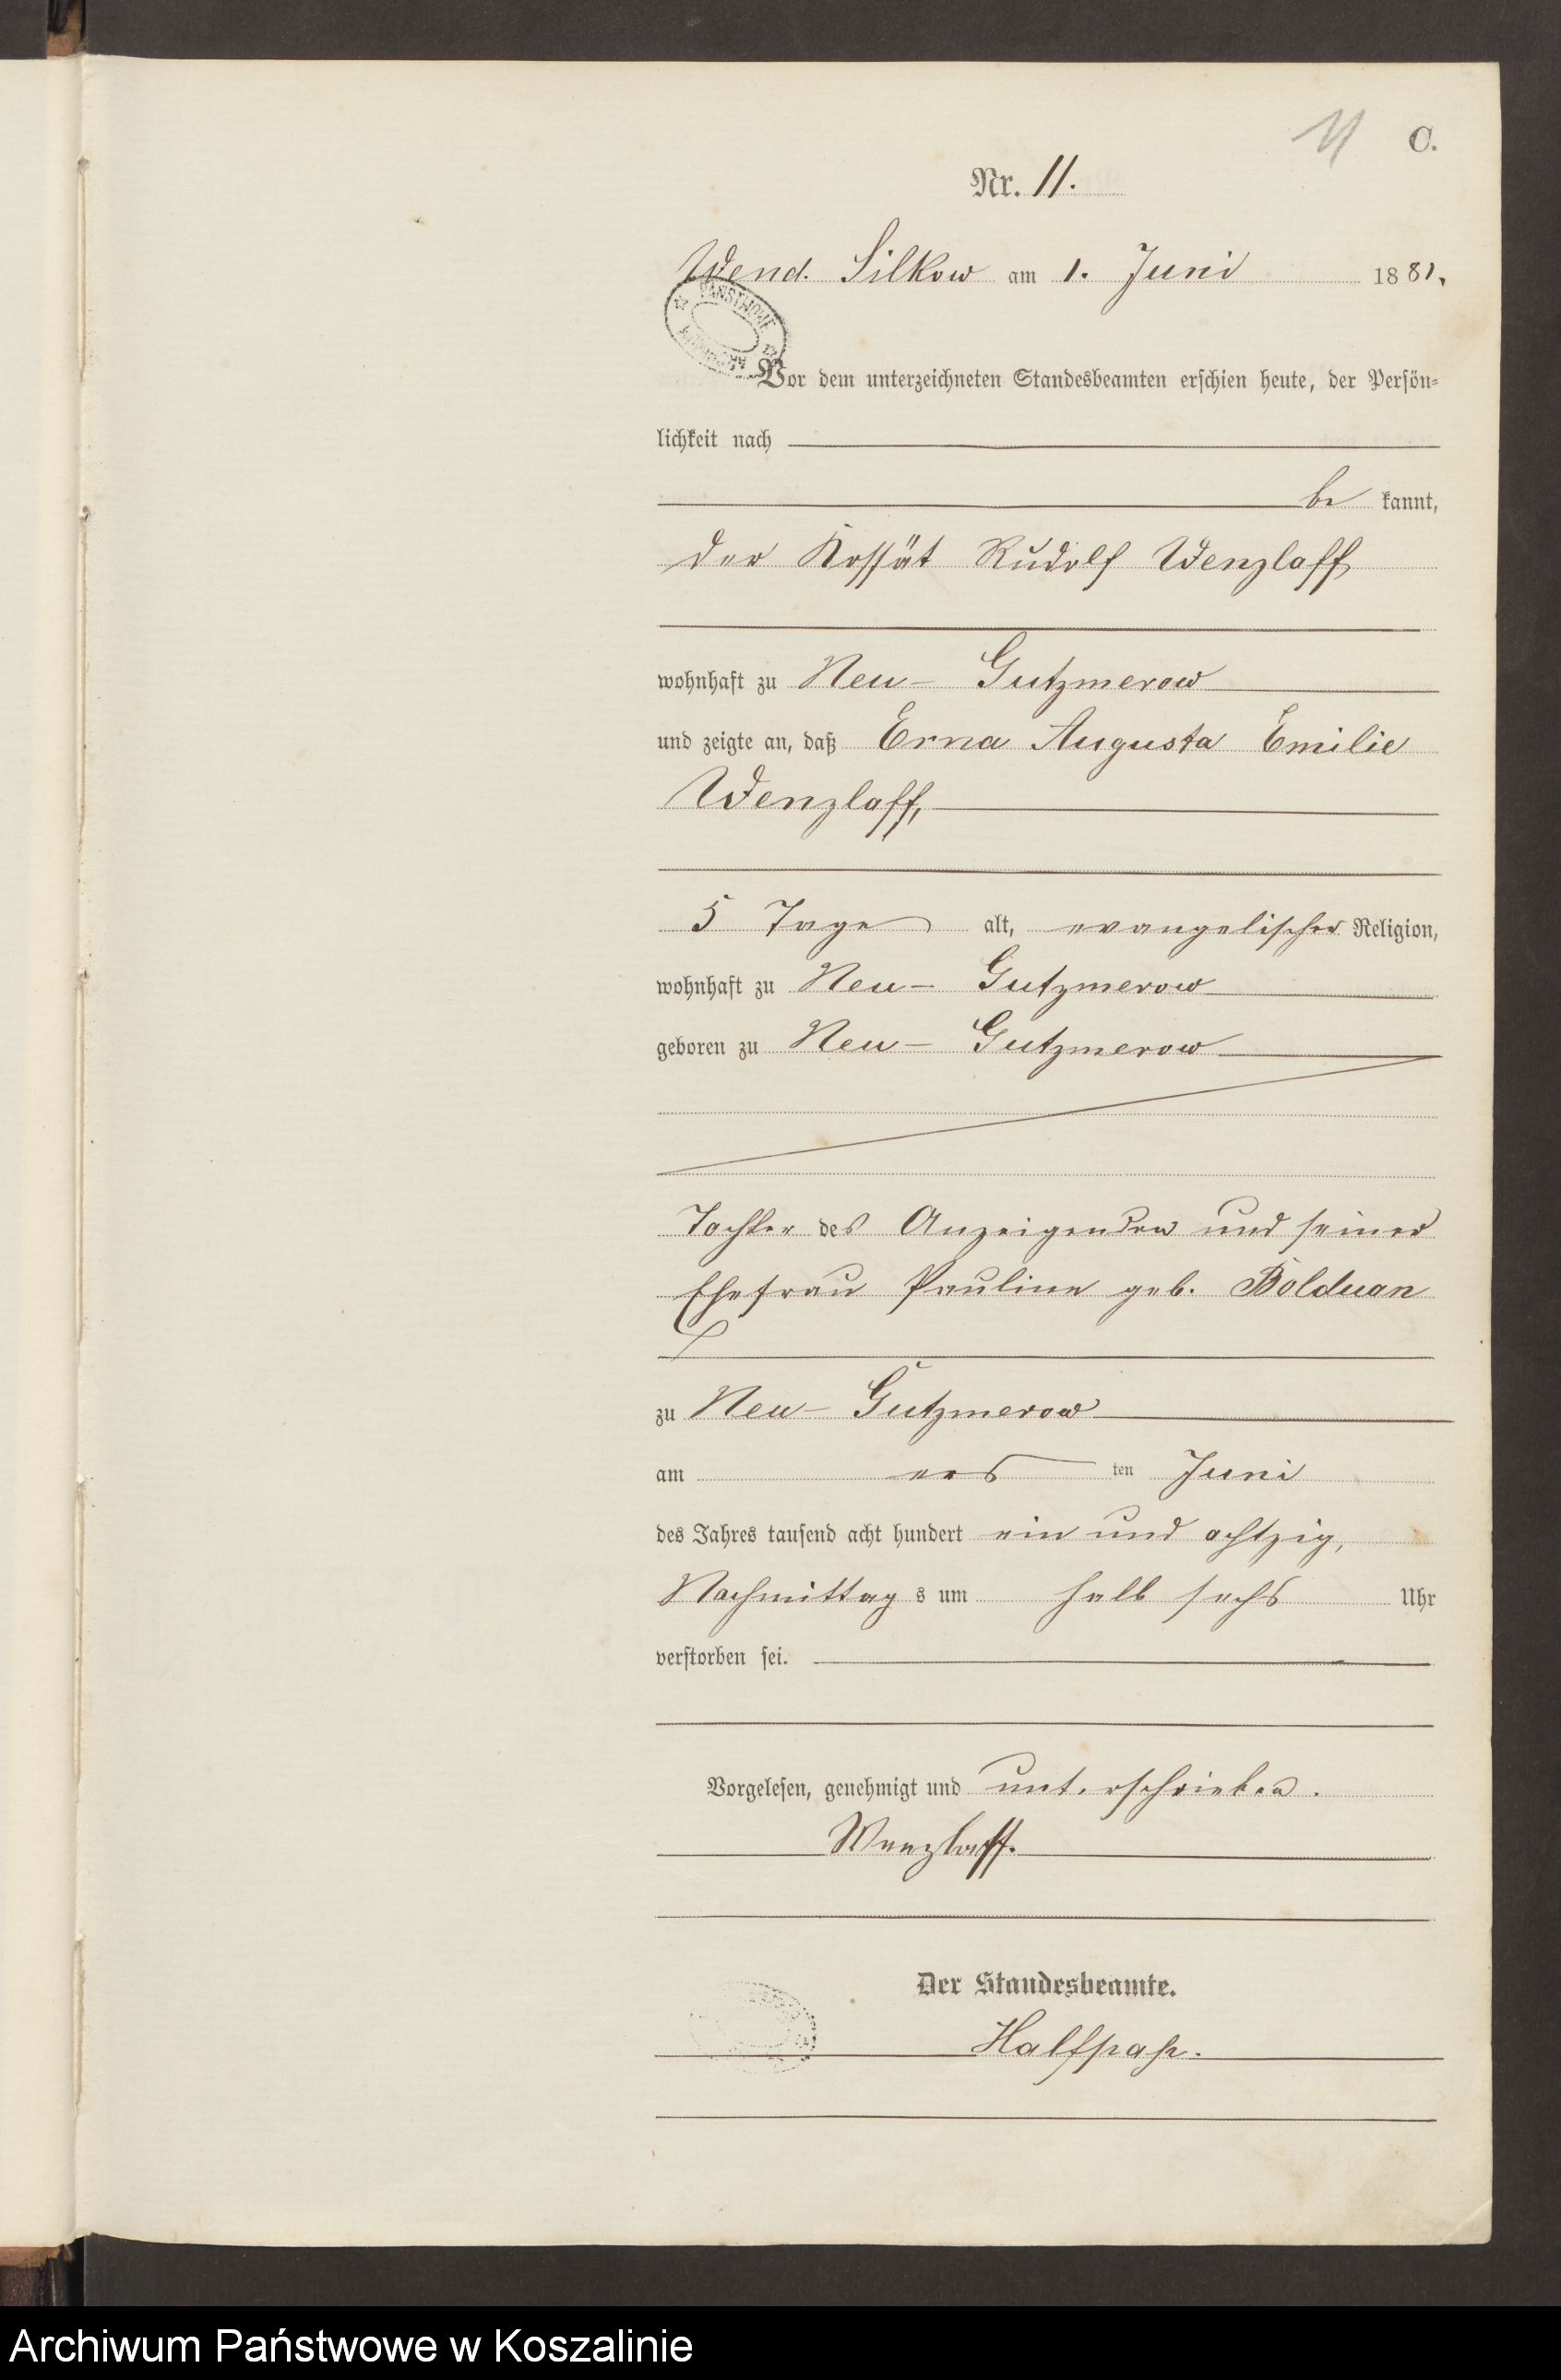 11 C.
Nr. 11.
Wend. Silkow am 1. Juni 1881.
PAŃSTWOWE
ARCHIWUM
Vor dem unterzeichneten Standesbeamten erschien heute, der Persön-
lichkeit nach
be kannt,
der Kossät Rudolf Wenzlaff
wohnhaft zu Neu-Gutzmerow
und zeigte an, daß Erna Augusta Emilie
Wenzlaff,
5 Tage alt, evangelischer Religion,
wohnhaft zu Neu-Gutzmerow
geboren zu Neu-Gutzmerow
Tochter des Anzeigenden und seiner
Ehefrau Pauline geb. Bolduan
zu Neu-Gutzmerow
am ers ten Juni
des Jahres tausend acht hundert ein und achtzig,
Nachmittag s um halb sechs Uhr
verstorben sei.
Vorgelesen, genehmigt und unterschrieben.
Wenzlaff.
Der Standesbeamte.
Halfpap.
Archiwum Państwowe w Koszalinie